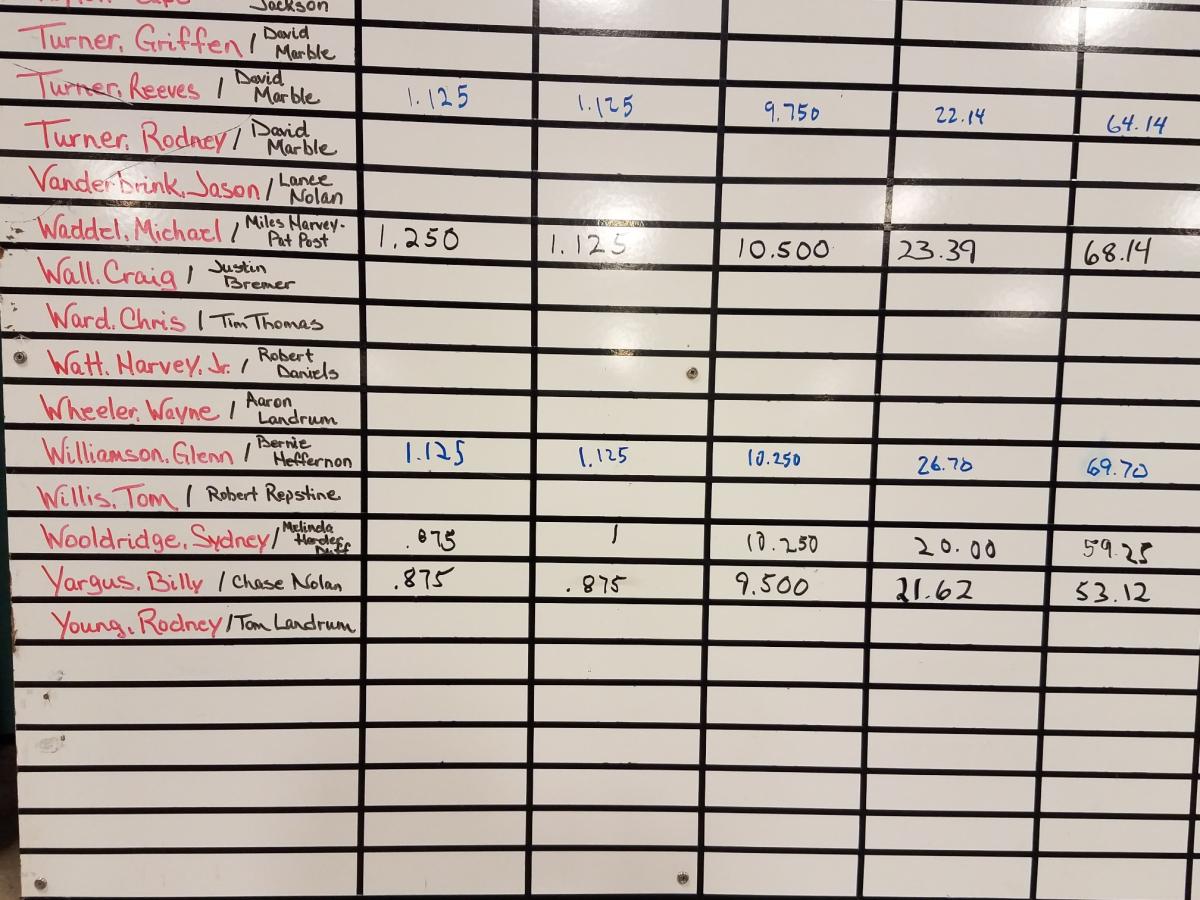 Jackson
Turner, Griffen / David Marble
Turner, Reeves / David Marble 1.125 1.125 9.750 22.14 64.14
Turner, Rodney / David Marble
Vanderbrink, Jason / Lance Nolan
Waddel, Michael / Miles Harvey- Pat Post 1.250 1.125 10.500 23.39 68.14
Wall, Craig / Justin Bremer
Ward, Chris / Tim Thomas
Watt, Harvey, Jr. / Robert Daniels
Wheeler, Wayne / Aaron Landrum
Williamson, Glenn / Bernie Heffernon 1.125 1.125 10.250 26.70 69.70
Willis, Tom / Robert Repstine
Wooldridge, Sydney / Melinda Harder Duff .875 1 10.250 20.00 59.25
Yargus, Billy / Chase Nolan .875 .875 9.500 21.62 53.12
Young, Rodney / Tom Landrum